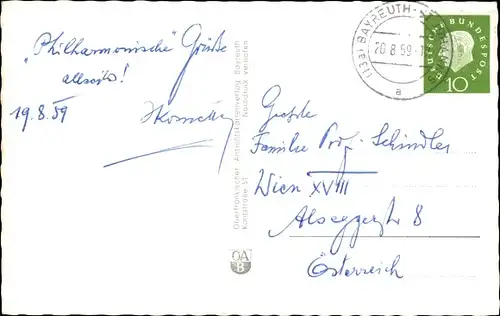 "Philharmonische" Grüße
allseits!
19.8.59
(13a) BAYREUTH
20.8.59
a
DEUTSCHE BUNDESPOST
10
Oberfränkischer Ansichtskartenverlag Bayreuth
Kantstraße 51 Nachdruck verboten
OA
B
Familie Prof. Schindler
Wien XVIII
Alseggerstr 8
Österreich